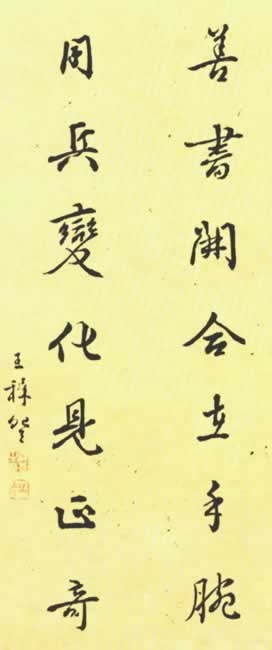 善書開合在手腕
用兵變化見正奇
王穉登